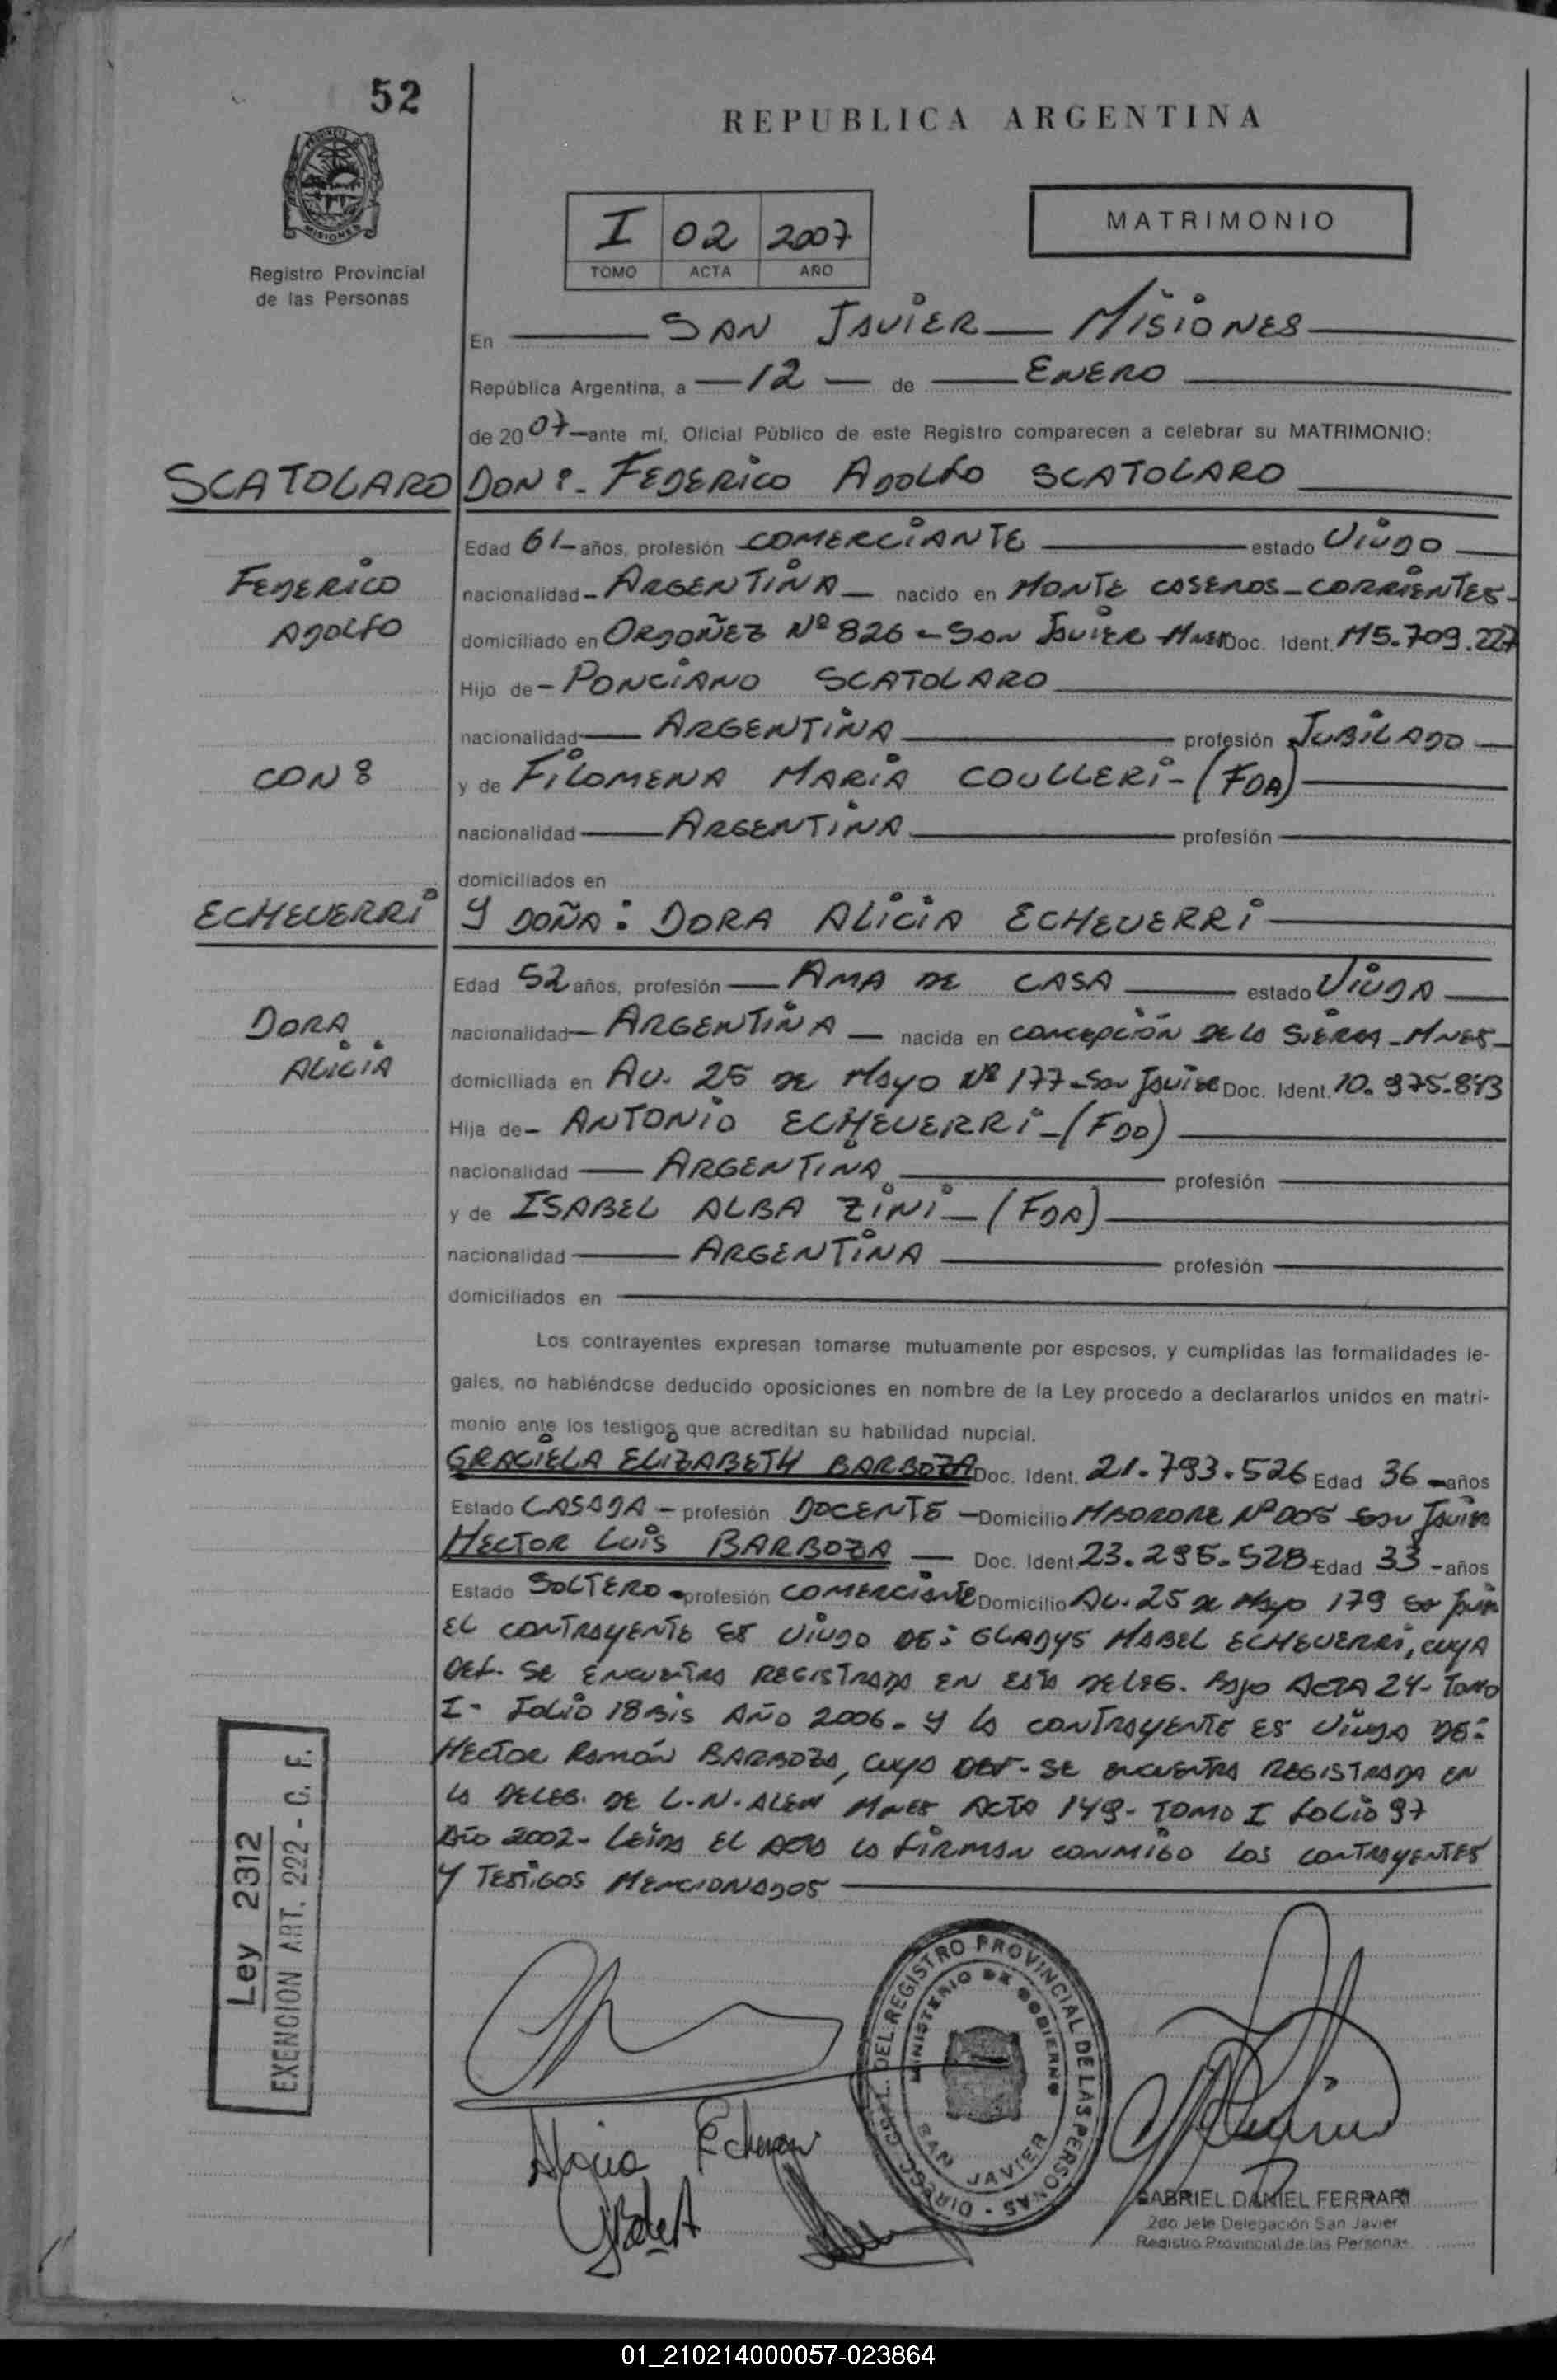 52
REPUBLICA ARGENTINA
MISIONES
Registro Provincial
de las Personas
I 02 2007
TOMO ACTA AÑO
MATRIMONIO
En SAN JAVIER MISIONES
República Argentina, a 12 de ENERO
de 2007 ante mí, Oficial Público de este Registro comparecen a celebrar su MATRIMONIO:
SCATOLARO DON: FEDERICO ADOLFO SCATOLARO
Edad 61 años, profesión COMERCIANTE estado VIUDO
FEDERICO nacionalidad ARGENTINA nacido en MONTE CASEROS - CORRIENTES
ADOLFO domiciliado en ORDOÑEZ Nº 826 - SAN JAVIER MNES Doc. Ident. M5.709.227
Hijo de PONCIANO SCATOLARO
nacionalidad ARGENTINA profesión JUBILADO
CON: y de FILOMENA MARIA COULLERI - (FDA)
nacionalidad ARGENTINA profesión
domiciliados en
ECHEVERRI Y DOÑA: DORA ALICIA ECHEVERRI
Edad 52 años, profesión AMA DE CASA estado VIUDA
DORA nacionalidad ARGENTINA nacida en CONCEPCIÓN DE LA SIERRA - MNES
ALICIA domiciliada en AV. 25 DE MAYO Nº 177 - SAN JAVIER Doc. Ident. 10.975.843
Hija de ANTONIO ECHEVERRI - (FDO)
nacionalidad ARGENTINA profesión
y de ISABEL ALBA ZINI - (FDA)
nacionalidad ARGENTINA profesión
domiciliados en
Los contrayentes expresan tomarse mutuamente por esposos, y cumplidas las formalidades le-
gales, no habiéndose deducido oposiciones en nombre de la Ley procedo a declararlos unidos en matri-
monio ante los testigos que acreditan su habilidad nupcial.
GRACIELA ELIZABETH BARBOZA Doc. Ident. 21.793.526 Edad 36 años
Estado CASADA profesión DOCENTE Domicilio MBORORE Nº 005 SAN JAVIER
HECTOR LUIS BARBOZA Doc. Ident. 23.295.528 Edad 33 años
Estado SOLTERO profesión COMERCIANTE Domicilio AV. 25 DE MAYO 179 SAN JAVIER
EL CONTRAYENTE ES VIUDO DE: GLADYS MABEL ECHEVERRI, CUYA
DEF. SE ENCUENTRA REGISTRADA EN ESTA DELEG. BAJO ACTA 24 - TOMO
I - FOLIO 18 BIS AÑO 2006. Y LA CONTRAYENTE ES VIUDA DE:
HECTOR RAMÓN BARBOZA, CUYA DEF. SE ENCUENTRA REGISTRADA EN
LA DELEG. DE L.N. ALEM MNES ACTA 149 - TOMO I FOLIO 97
AÑO 2002 - LEIDA EL ACTA LA FIRMAN CONMIGO LOS CONTRAYENTES
Y TESTIGOS MENCIONADOS
Ley 2312
EXENCION ART. 222 - C. F.
DIRECC. GRAL. DEL REGISTRO PROVINCIAL DE LAS PERSONAS
MINISTERIO DE GOBIERNO
SAN JAVIER
Alicia Echeverri
GABRIEL DANIEL FERRARI
2do Jefe Delegación San Javier
Registro Provincial de las Personas
01_210214000057-023864